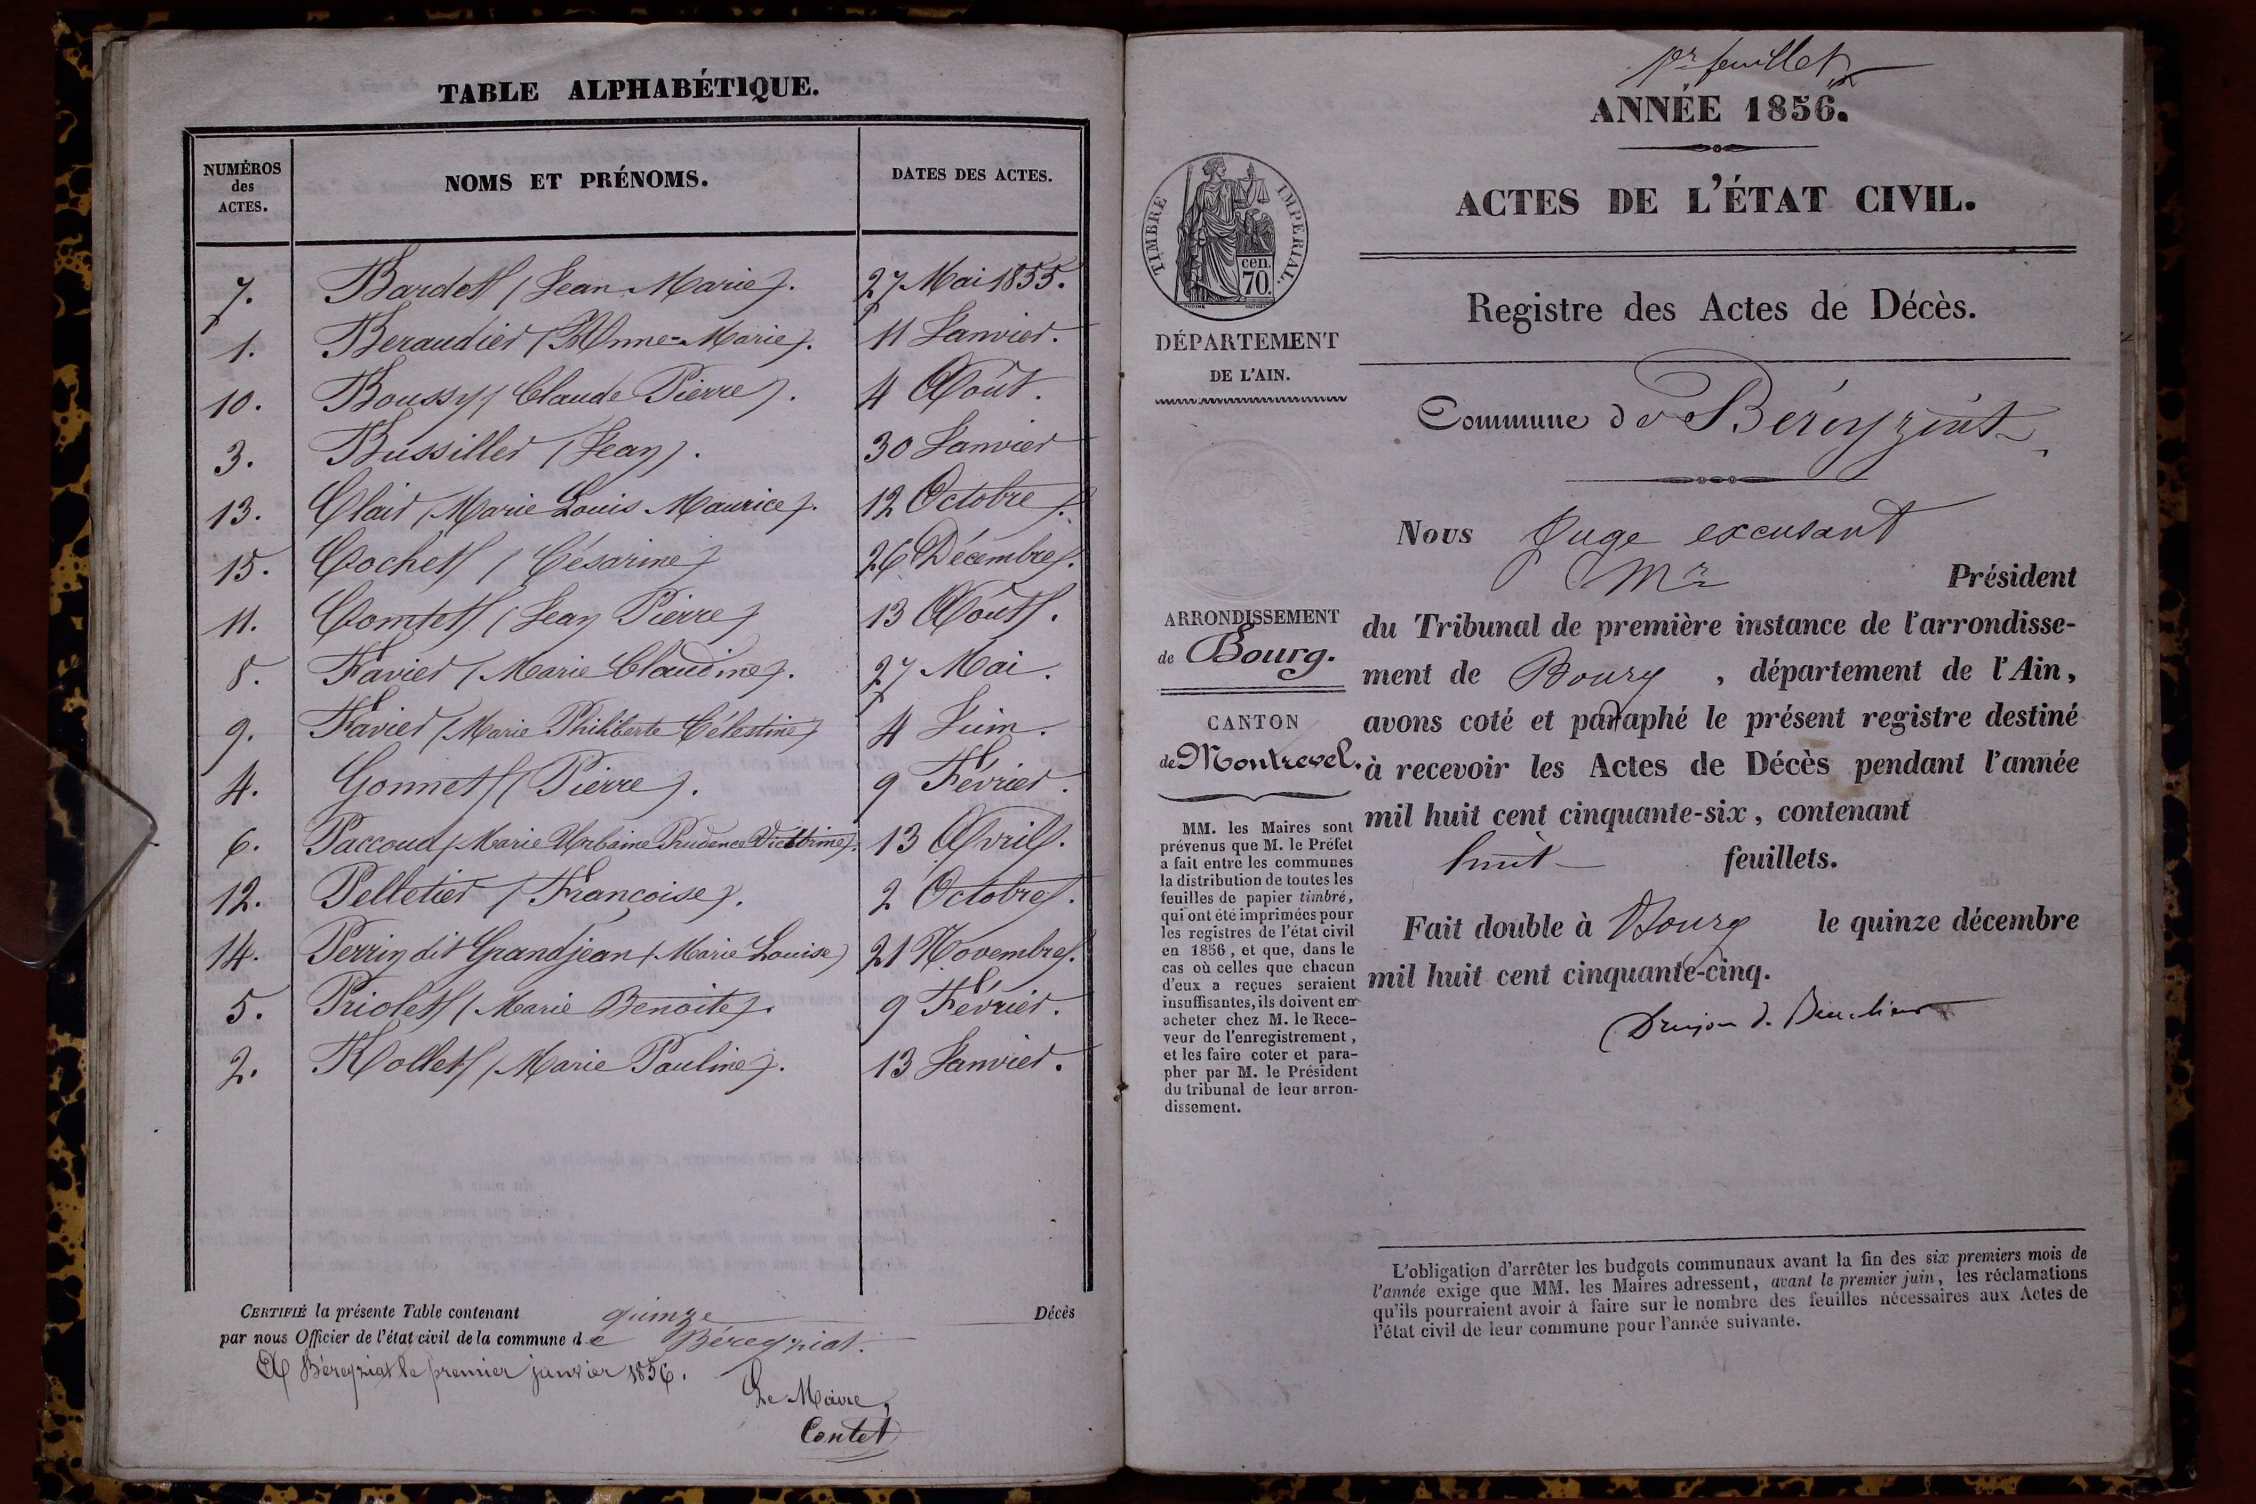 TABLE ALPHABÉTIQUE.
NUMÉROS
des
ACTES.
NOMS ET PRÉNOMS.
DATES DES ACTES.
7. Bardet (Jean Marie). 27 Mai 1855.
1. Beraudier (Anne-Marie). 11 Janvier.
10. Boussy (Claude Pierre). 4 Août.
3. Bussillet (Jean). 30 Janvier
13. Clair (Marie Louis Maurice). 12 Octobre.
15. Cochet (Césarine) 26 Décembre.
11. Comtet (Jean Pierre) 13 Août.
8. Favier (Marie Claudine). 27 Mai.
9. Favier (Marie Philiberte Célestine) 4 Juin.
4. Gonnet (Pierre). 9 Février.
6. Paccoud (Marie Urbaine Prudence Victorine). 13 Avril.
12. Pelletier (Françoise). 2 Octobre.
14. Perrin dit Grandjean (Marie Louise) 21 Novembre.
5. Priolet (Marie Benoite). 9 Février.
2. Rollet (Marie Pauline). 13 Janvier.
CERTIFIÉ la présente Table contenant quinze Décès
par nous Officier de l'état civil de la commune de Béreyziat.
A Béreyziat le premier janvier 1856.
Le Maire,
Contet
1er feuillet
ANNÉE 1856.
ACTES DE L'ÉTAT CIVIL.
Registre des Actes de Décès.
TIMBRE IMPERIAL.
cen.
70.
DÉPARTEMENT
DE L'AIN.
ARRONDISSEMENT
de Bourg.
CANTON
de Montrevel.
MM. les Maires sont
prévenus que M. le Préfet
a fait entre les communes
la distribution de toutes les
feuilles de papier timbré,
qui ont été imprimées pour
les registres de l'état civil
en 1856, et que, dans le
cas où celles que chacun
d'eux a reçues seraient
insuffisantes, ils doivent en
acheter chez M. le Rece-
veur de l'enregistrement,
et les faire coter et para-
pher par M. le Président
du tribunal de leur arron-
dissement.
Commune de Béreyziat
Nous Juge excusant
Mr Président
du Tribunal de première instance de l'arrondisse-
ment de Bourg, département de l'Ain,
avons coté et paraphé le présent registre destiné
à recevoir les Actes de Décès pendant l'année
mil huit cent cinquante-six, contenant
huit feuillets.
Fait double à Bourg le quinze décembre
mil huit cent cinquante-cinq.
L'obligation d'arrêter les budgets communaux avant la fin des six premiers mois de
l'année exige que MM. les Maires adressent, avant le premier juin, les réclamations
qu'ils pourraient avoir à faire sur le nombre des feuilles nécessaires aux Actes de
l'état civil de leur commune pour l'année suivante.